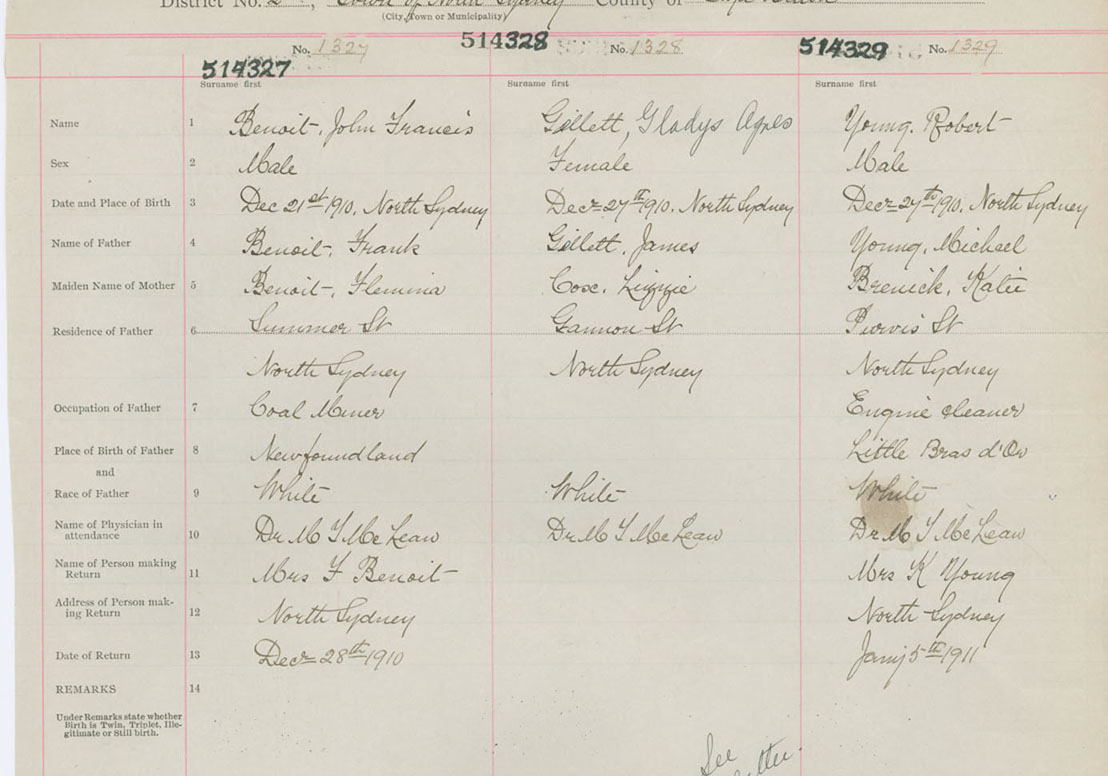 District No. 2, Town of North Sydney County of Cape Breton
(City, Town or Municipality)
No. 1327 514328 No. 1328 514329 No. 1329
514327
Surname first Surname first Surname first
Name 1 Benoit, John Francis Gillett, Gladys Agnes Young, Robert
Sex 2 Male Female Male
Date and Place of Birth 3 Dec 21st 1910, North Sydney Decr 27th 1910, North Sydney Decr 27th 1910, North Sydney
Name of Father 4 Benoit, Frank Gillett, James Young, Michael
Maiden Name of Mother 5 Benoit, Flemina Lizzie Katie
Residence of Father 6 Summer St Gannon St Purvis St
North Sydney North Sydney North Sydney
Occupation of Father 7 Coal Miner Engine cleaner
Place of Birth of Father 8 Newfoundland Little Bras d'Or
and
Race of Father 9 White White White
Name of Physician in attendance 10 Dr M T McLean Dr M T McLean Dr M T McLean
Name of Person making Return 11 Mrs F Benoit Mrs K Young
Address of Person mak-ing Return 12 North Sydney North Sydney
Date of Return 13 Decr 28th 1910 Jany 5th 1911
REMARKS 14
Under Remarks state whether
Birth is Twin, Triplet, Ille-
gitimate or Still birth.
See